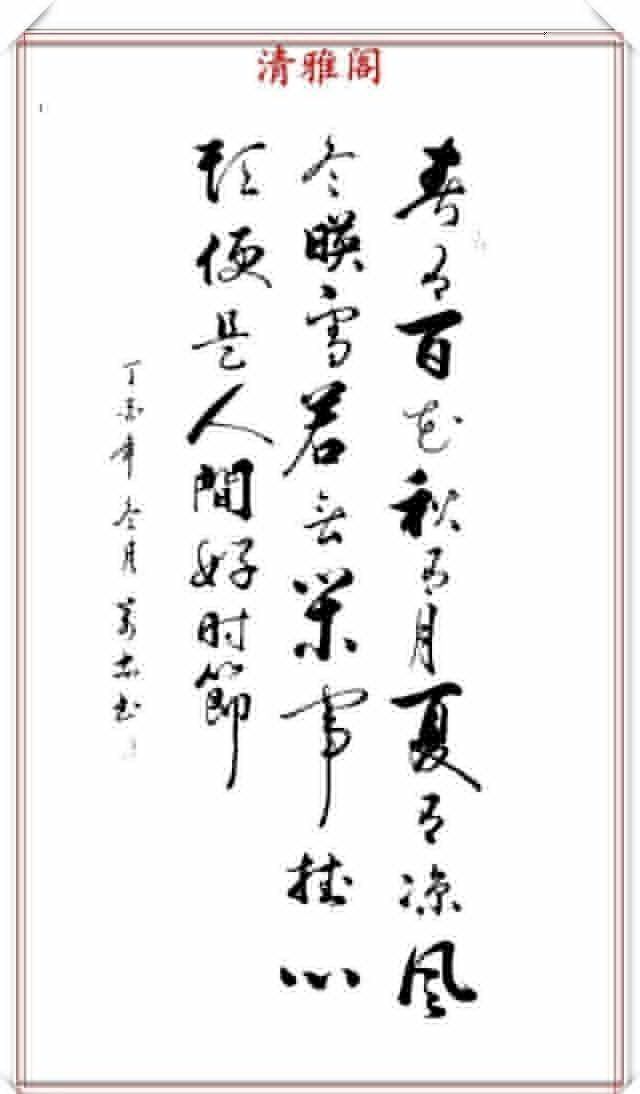 清雅阁
春有百花秋有月夏有凉风
冬暎雪若无閑事挂心
頭便是人間好时節
丁亥年冬月书